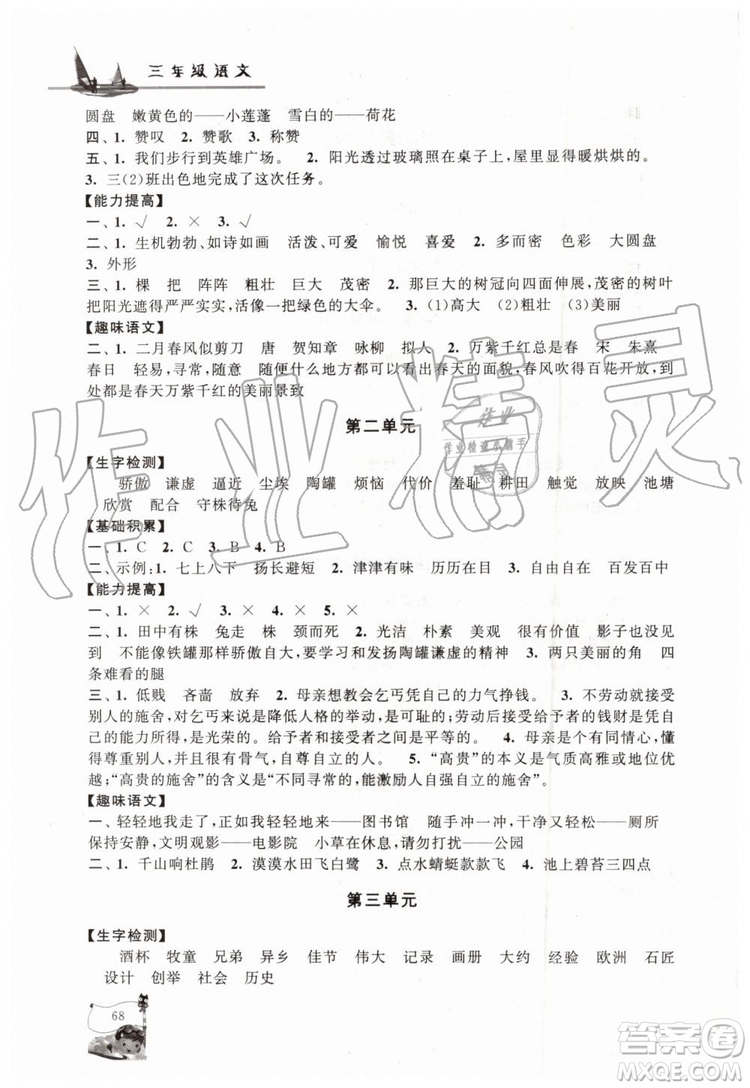 三年级语文
圆盘 嫩黄色的——小莲蓬 雪白的——荷花
四、1. 赞叹 2. 赞歌 3. 称赞
五、1. 我们步行到英雄广场。 2. 阳光透过玻璃照在桌子上,屋里显得暖烘烘的。
3. 三(2)班出色地完成了这次任务。
【能力提高】
一、1. √ 2. × 3. √
二、1. 生机勃勃、如诗如画 活泼、可爱 愉悦 喜爱 2. 多 密 色彩 大圆盘
3. 外形
三、1. 棵 把 阵阵 粗壮 巨大 茂密 2. 那巨大的树冠向四面伸展,茂密的树叶
把阳光遮得严严实实,活像一把绿色的大伞。 3. (1)高大 (2)粗壮 (3)美丽
【趣味语文】
二、1. 二月春风似剪刀 唐 贺知章 咏柳 拟人 2. 万紫千红总是春 宋 朱熹
春日 轻易,寻常,随意 随便什么地方都可以看出春天的面貌,春风吹得百花开放,到
处都是春天万紫千红的美丽景致
第二单元
【生字检测】
骄傲 谦虚 逼近 尘埃 陶罐 烦恼 代价 羞耻 耕田 触觉 放映 池塘
欣赏 配合 守株待兔
【基础积累】
一、1. C 2. C 3. B 4. B
二、示例:1. 七上八下 扬长避短 2. 津津有味 历历在目 3. 自由自在 百发百中
【能力提高】
一、1. × 2. √ 3. × 4. × 5. ×
二、1. 田中有株 兔走 株 颈而死 2. 光洁 朴素 美观 很有价值 鄙视和讽
刺 不能像铁罐那样骄傲自大,要学习和发扬陶罐谦虚的精神 3. 两只美丽的角 四
条难看的腿
三、1. 低贱 吝啬 放弃 2. 母亲想让乞丐凭自己的力气挣钱。 3. 不劳动就接受
别人的施舍,对乞丐来说是降低人格的举动,是可耻的;劳动后接受给予者的钱财是劳动
的能力所得,是光荣的。给予者和接受者之间是平等的。 4. 母亲是个有同情心,懂
得尊重别人,也很有骨气,自尊自立的人。 5. “高贵”的本义是气质高雅或地位优
越;“高贵的施舍”的含义是“不同寻常的,能激励人自强自立的施舍”。
【趣味语文】
一、轻轻地我走了,正如我轻轻地来——图书馆 随手冲一冲,干净又卫生——厕所
保持安静,文明观影——电影院 小草在休息,请勿打扰——公园
二、1. 千山响杜鹃 2. 漠漠水田飞白鹭 3. 点水蜻蜓款款飞 4. 池上碧苔三四点
第三单元
【生字检测】
酒杯 牧童 兄弟 异乡 佳节 伟大 记录 画册 大约 经验 欧洲 石匠
设计 创举 社会 历史
68
作业精灵
作业
作业检查小助手
精灵
答案圈
MXQE.COM